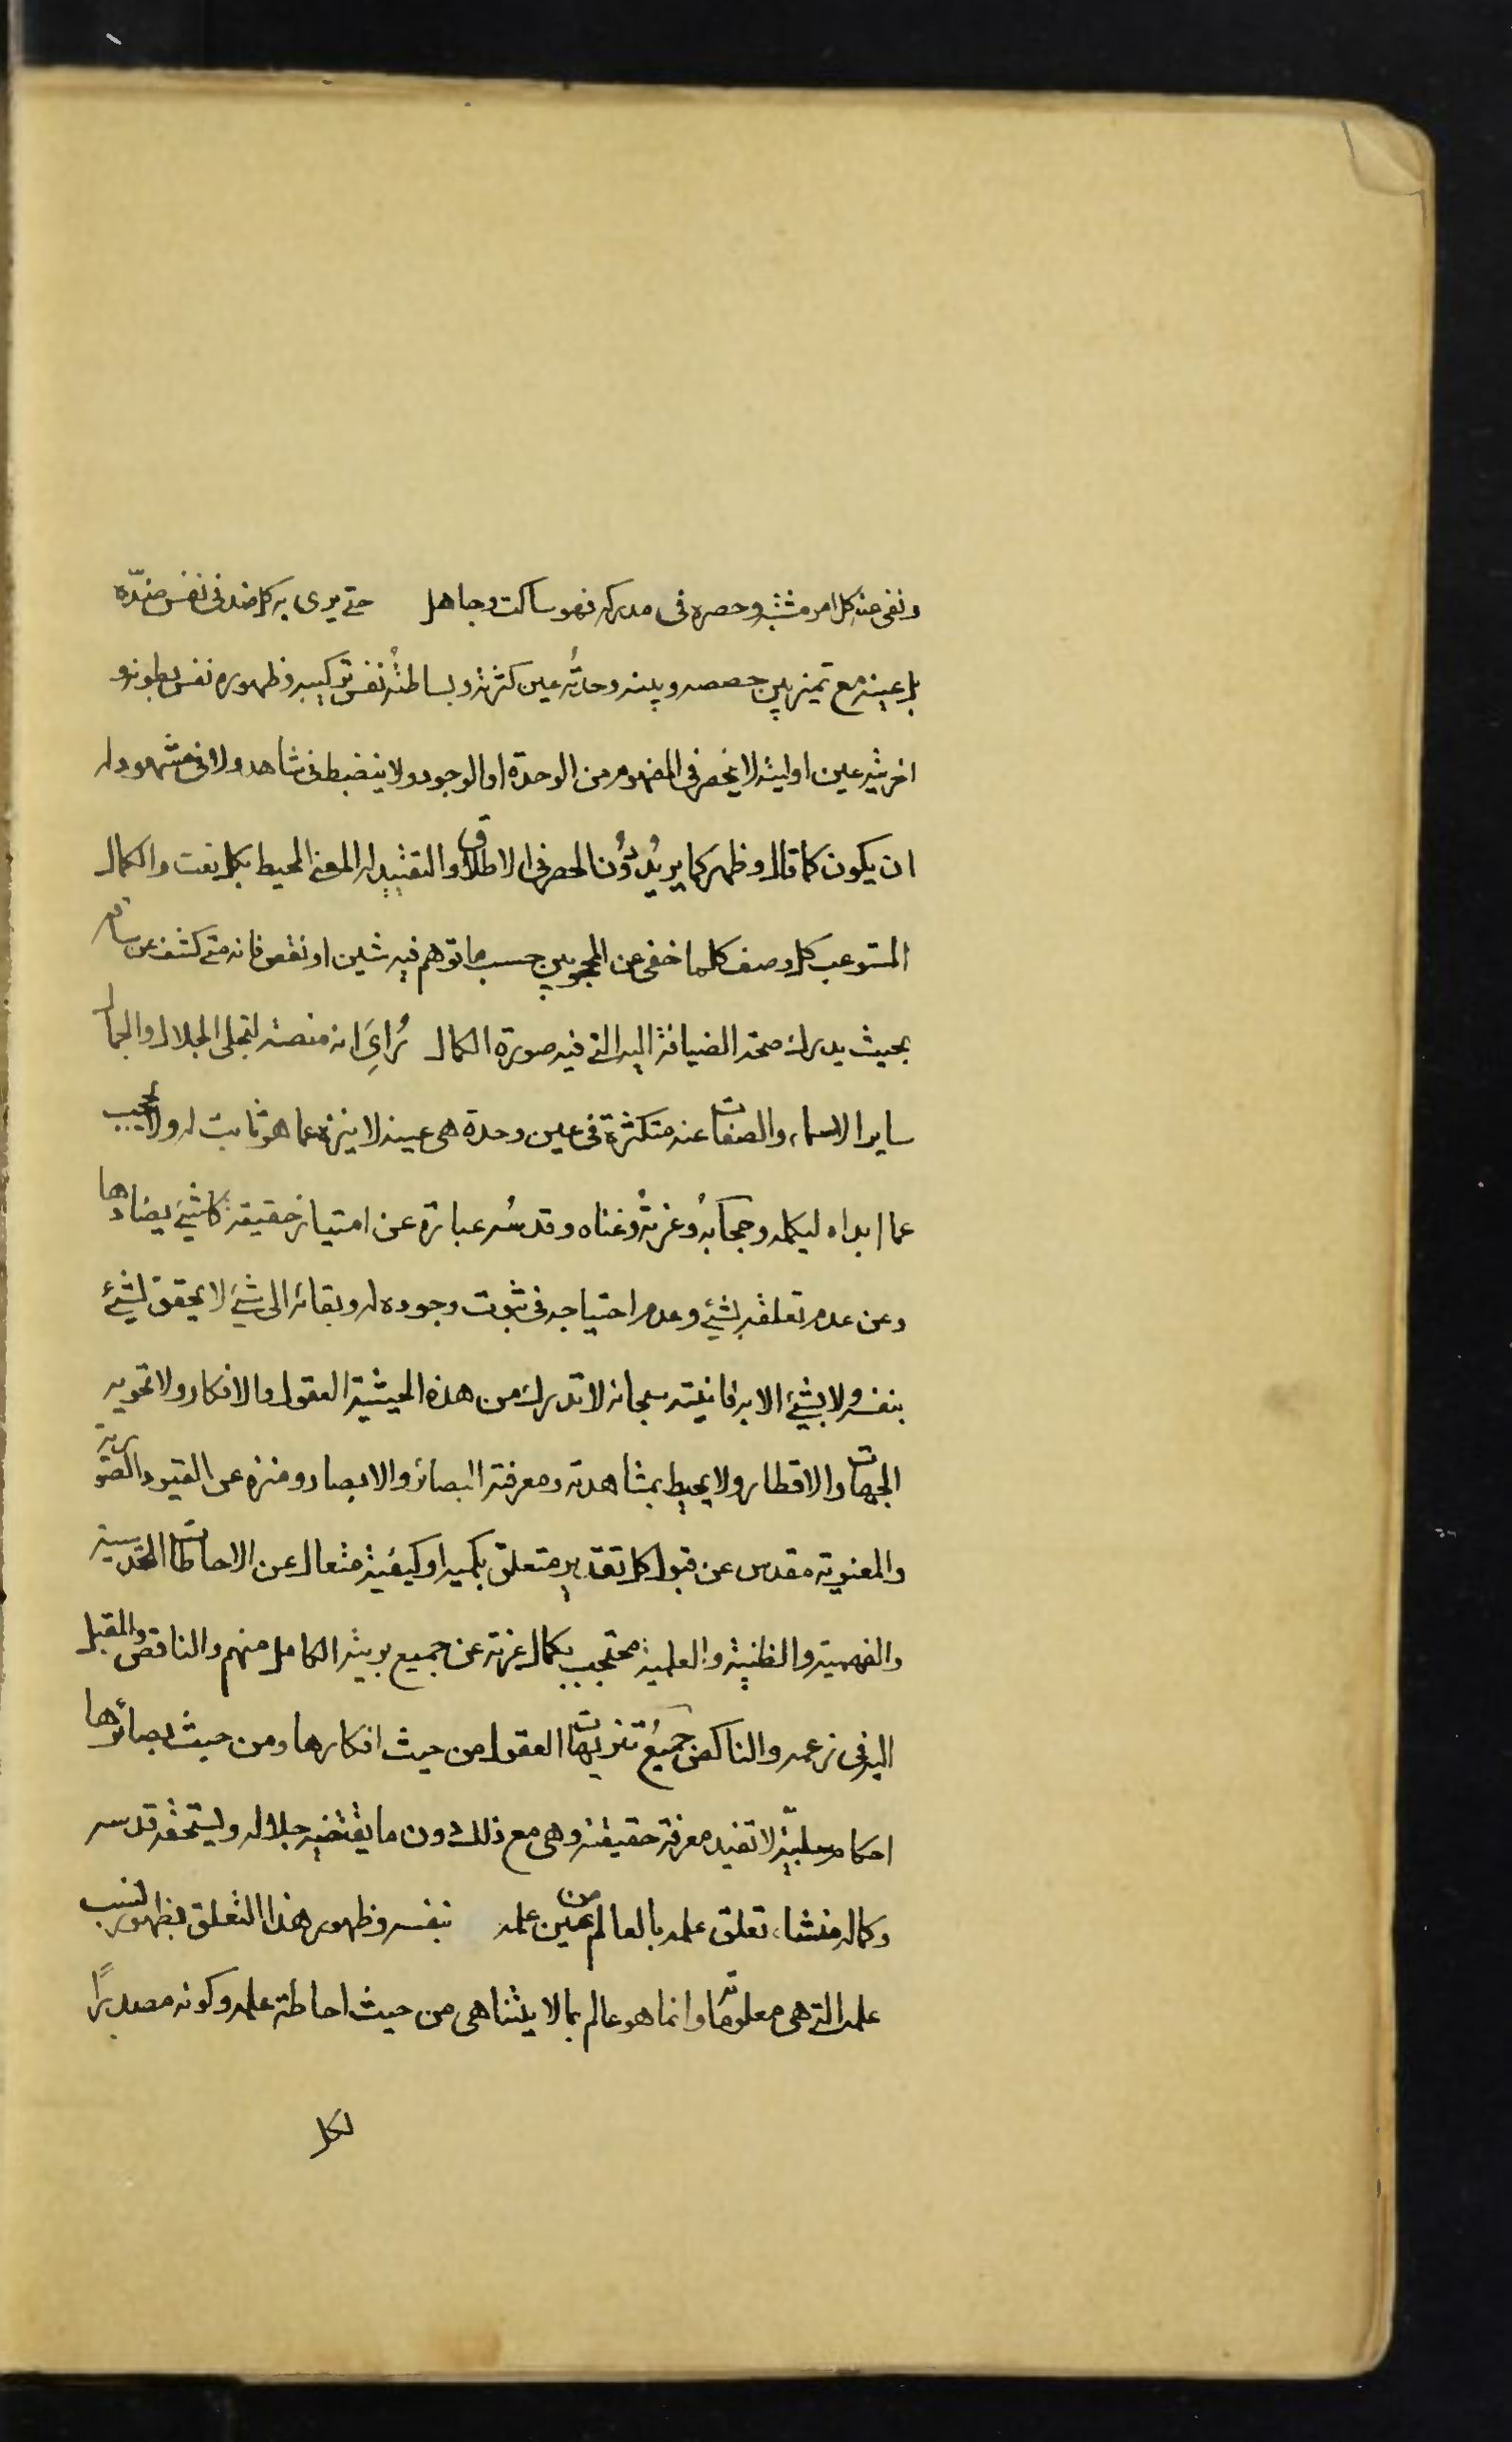 ونفى عنه كل امر مشتبه وحصره فى مدركه فهو ساكت وجاهل حتى يرى به كل ضد فى نفس ضدّه
بل عينه مع تميز بين حصصه وبينه وحدته عين كثرته وبساطته نفس تركيبه وظهوره نفس بطونه و
اخريته عين اوليته لا ينحصر فى المفهوم من الوحدة او الوجود ولا ينضبط فى شاهد ولا فى مشهود له
ان يكون كما قال وظهر كما يريد دون الحصر فى الاطلاق والتقييد له المعنى المحيط بكل نعت والكمال
المستوعب كل وصف كلما خفى عن المحجوبين حسب ما توهم فيه شين او نقص فانه متى كشف عن ساقه
بحيث يدرك صحة الضيافة اليه التى فيه صورة الكمال رُاىَ انه منصة لتجلى الجلال والجمال
ساير الاسماء والصفات عنه متكثرة فى عين وحدة هى عينه لا ينزه عما هو ثابت له ولا يحجب
عما ابداه ليكمله وحجابه وعزته وغناه وقدسه عبارة عن امتياز حقيقته كل شئ يضادها
وعن عدم تعلقه بشئ وعدم احتياجه فى ثبوت وجوده له وبقائه الى شئ لا تحقق لشئ
بنفسه ولا بشئ الا به فانيته سبحانه لا تدرك من هذه الحيثية العقول والافكار ولا تحويه
الجهات والاقطار ولا يحيط بمشاهدته ومعرفته البصائر والابصار ومنزه عن القيود الصورية
والمعنوية مقدس عن قبول كل تقدير متعلق بكمية او كيفية متعال عن الاحاطات الحدسية
والفهمية والظنية والعلمية محتجب بكمال عزته عن جميع بريته الكامل منهم والناقص والمقبل
اليه فى زعمه والناكص جميع تنزيهات العقول من حيث افكارها ومن حيث بصائرها
احكام سلبية لا تفيد معرفة حقيقته وهى مع ذلك دون ما يقتضيه جلاله ويستحقه قدسه
وكماله منشاء تعلق علمه بالعالم من عين علمه بنفسه وظهور هذا التعلق بظهور نسب
علمه التى هى معلوماته وانما هو عالم بما لا يتناهى من حيث احاطة علمه وكونه مصدراً
لكل